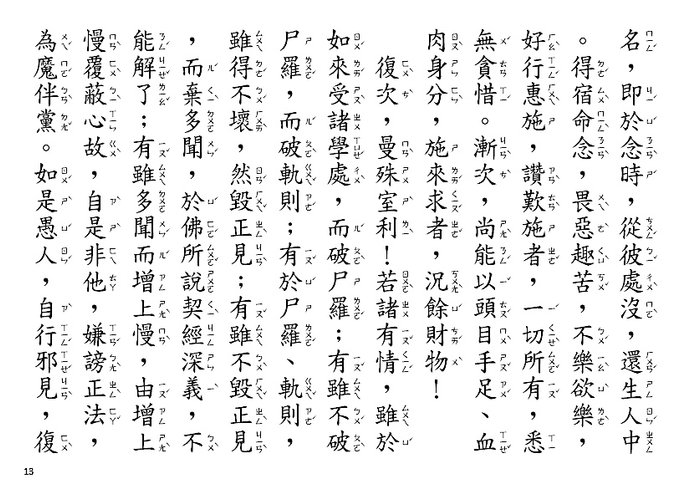 名，即於念時，從彼處沒，還生人中
。得宿命念，畏惡趣苦，不樂欲樂，
好行惠施，讚歎施者，一切所有，悉
無貪惜。漸次，尚能以頭目手足、血
肉身分，施來求者，況餘財物！
復次，曼殊室利！若諸有情，雖於
如來受諸學處，而破尸羅；有雖不破
尸羅，而破軌則；有於尸羅、軌則，
雖得不壞，然毀正見；有雖不毀正見
，而棄多聞，於佛所說契經深義，不
能解了；有雖多聞而增上慢，由增上
慢覆蔽心故，自是非他，嫌謗正法，
為魔伴黨。如是愚人，自行邪見，復
13